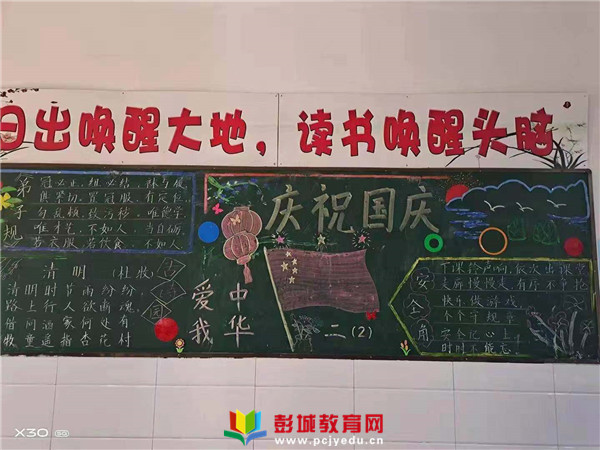 日出唤醒大地，读书唤醒头脑
弟子规
冠必正，纽必结，袜与履
俱紧切，置冠服，有定位
勿乱顿，致污秽，唯德学
唯才艺，不如人，当自砺
若衣服，若饮食，不如人
清明 (杜牧)
清明时节雨纷纷
路上行人欲断魂
借问酒家何处有
牧童遥指杏花村
古诗园
庆祝国庆
爱我
中华
二(2)
安全角
下课铃声响，依次出课堂
走廊慢慢走 有序不争抢
快乐做游戏
个个守规章
安全记心上
时时不能忘
X30 5G
彭城教育网
www.pcjyedu.cn